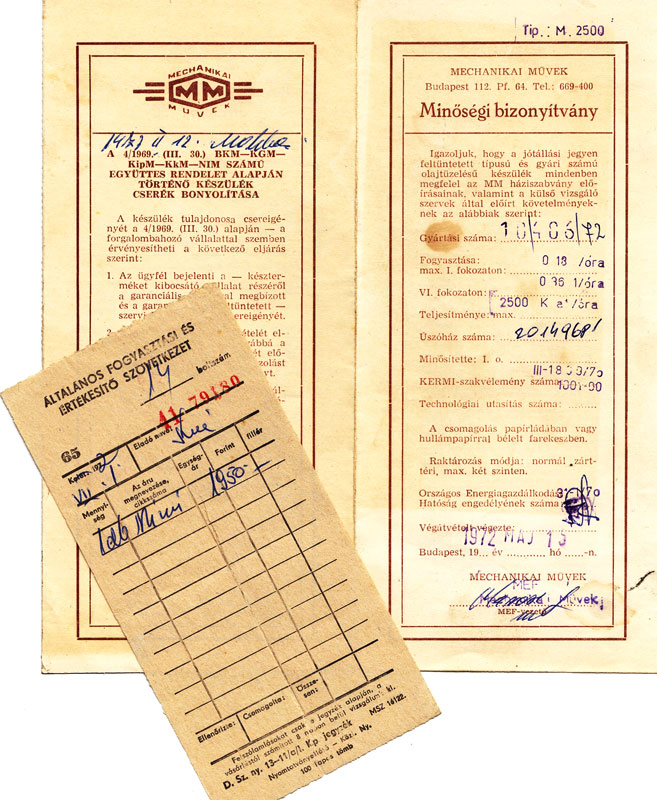 MECHANIKAI
MM
MŰVEK
1972 II 12.
A 4/1969. (III. 30.) BKM—KGM—
KipM—KkM—NIM SZÁMÚ
EGYÜTTES RENDELET ALAPJÁN
TÖRTÉNŐ KÉSZÜLÉK
CSERÉK BONYOLÍTÁSA
A készülék tulajdonosa csereigé-
nyét a 4/1969. (III. 30.) alapján — a
forgalombahozó vállalattal szemben
érvényesítheti a következő eljárás
szerint:
1. Az ügyfél bejelenti a — készter-
méket kibocsátó vállalat részéről
a garanciális
és a garan
szervi
Tip.: M. 2500
MECHANIKAI MŰVEK
Budapest 112. Pf. 64. Tel.: 669-400
Minőségi bizonyítvány
Igazoljuk, hogy a jótállási jegyen
feltüntetett típusú és gyári számú
olajtüzelésű készülék mindenben
megfelel az MM háziszabvány elő-
írásainak, valamint a külső vizsgáló
szervek által előírt követelmények-
nek az alábbiak szerint:
Gyártási száma: 10/406/72
Fogyasztása: 0 18 l/óra
max. I. fokozaton:
VI. fokozaton: 0 36 l/óra
Teljesítménye: max. 2500 K a'/óra
Úszóház száma: 2014968
Minősítette: I. o.
KERMI-szakvélemény száma
Technológiai utasítás száma:
A csomagolás papírládában vagy
hullámpapírral bélelt farekeszben.
Raktározás módja: normál zárt-
téri, max. két szinten.
Országos Energiagazdálkodás
Hatóság engedélyének száma
Végátvételt végezte:
1972 MÁJ 15
Budapest, 19... év ... hó ...-n.
MECHANIKAI MŰVEK
MEF
Mechanikai Művek
MEF-vezető
ÁLTALÁNOS FOGYASZTÁSI ÉS
ÉRTÉKESÍTŐ SZÖVETKEZET
14 boltszám
41 79180
65
Eladó neve:
Kelet: 1972
VII. 1.
Mennyi-
ség
Az áru
megnevezése,
cikkszáma
Egység-
ár
Forint
fillér
1 db
1950.-
Ellenőrizte:
Csomagolta:
Össze-
sen:
Felszólamlásokat csak a jegyzék alapján, a
vásárlástól számított 8 napon belül vizsgálunk ki.
D. Sz. ny. 13–11/c/l. Kp jegyzék MSZ 16122.
Nyomtatványellátó – Kázi. Ny.
100 lapos tömb